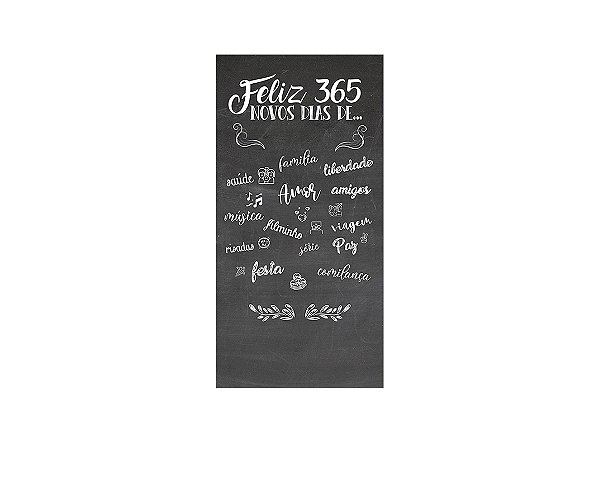 Feliz 365
NOVOS DIAS DE...
família
liberdade
saúde
Amor
amigos
música
filminho
viagem
risadas
série
Paz
festa
comilança